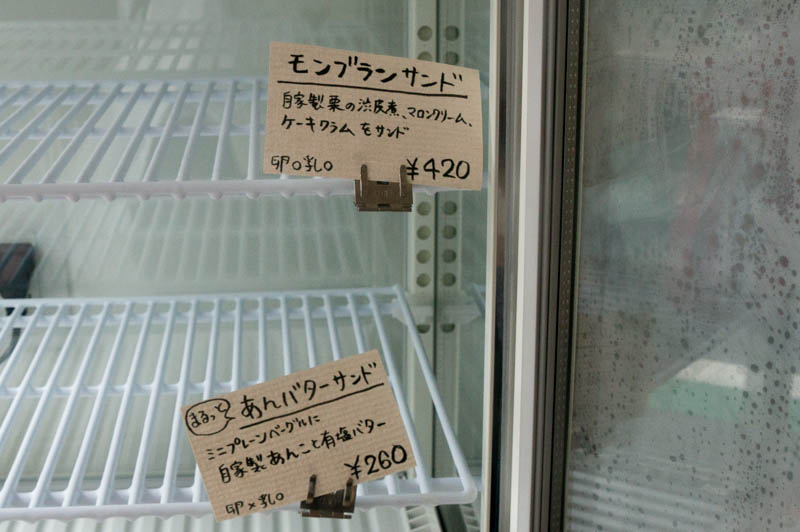 モンブランサンド
自家製栗の渋皮煮、マロンクリーム、
ケーキクラムをサンド
卵○乳○ ¥420
まるっと あんバターサンド
ミニプレーンベーグルに
自家製あんこと有塩バター
¥260
卵×乳○